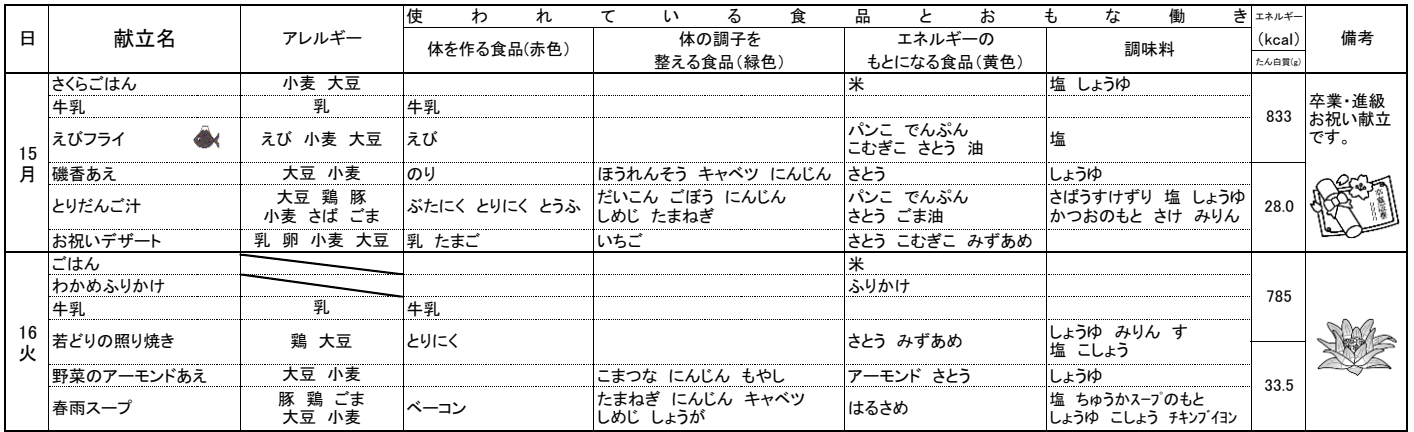 日 献立名 アレルギー 使われている食品とおもな働き エネルギー (kcal) たん白質(g) 備考
体を作る食品(赤色) 体の調子を 整える食品(緑色) エネルギーの もとになる食品(黄色) 調味料
15 月
さくらごはん 小麦 大豆 米 塩 しょうゆ
牛乳 乳 牛乳
えびフライ えび 小麦 大豆 えび パンこ でんぷん
こむぎこ さとう 油 塩
833
卒業・進級
お祝い献立
です。
磯香あえ 大豆 小麦 のり ほうれんそう キャベツ にんじん さとう しょうゆ
とりだんご汁 大豆 鶏 豚
小麦 さば ごま ぶたにく とりにく とうふ だいこん ごぼう にんじん
しめじ たまねぎ パンこ でんぷん
さとう ごま油 さばうすけずり 塩 しょうゆ
かつおのもと さけ みりん
28.0
お祝いデザート 乳 卵 小麦 大豆 乳 たまご いちご さとう こむぎこ みずあめ
16 火
ごはん 米
わかめふりかけ ふりかけ
牛乳 乳 牛乳
785
若どりの照り焼き 鶏 大豆 とりにく さとう みずあめ しょうゆ みりん す
塩 こしょう
野菜のアーモンドあえ 大豆 小麦 こまつな にんじん もやし アーモンド さとう しょうゆ
33.5
春雨スープ 豚 鶏 ごま
大豆 小麦 ベーコン たまねぎ にんじん キャベツ
しめじ しょうが はるさめ 塩 ちゅうかスープのもと
しょうゆ こしょう チキンブイヨン